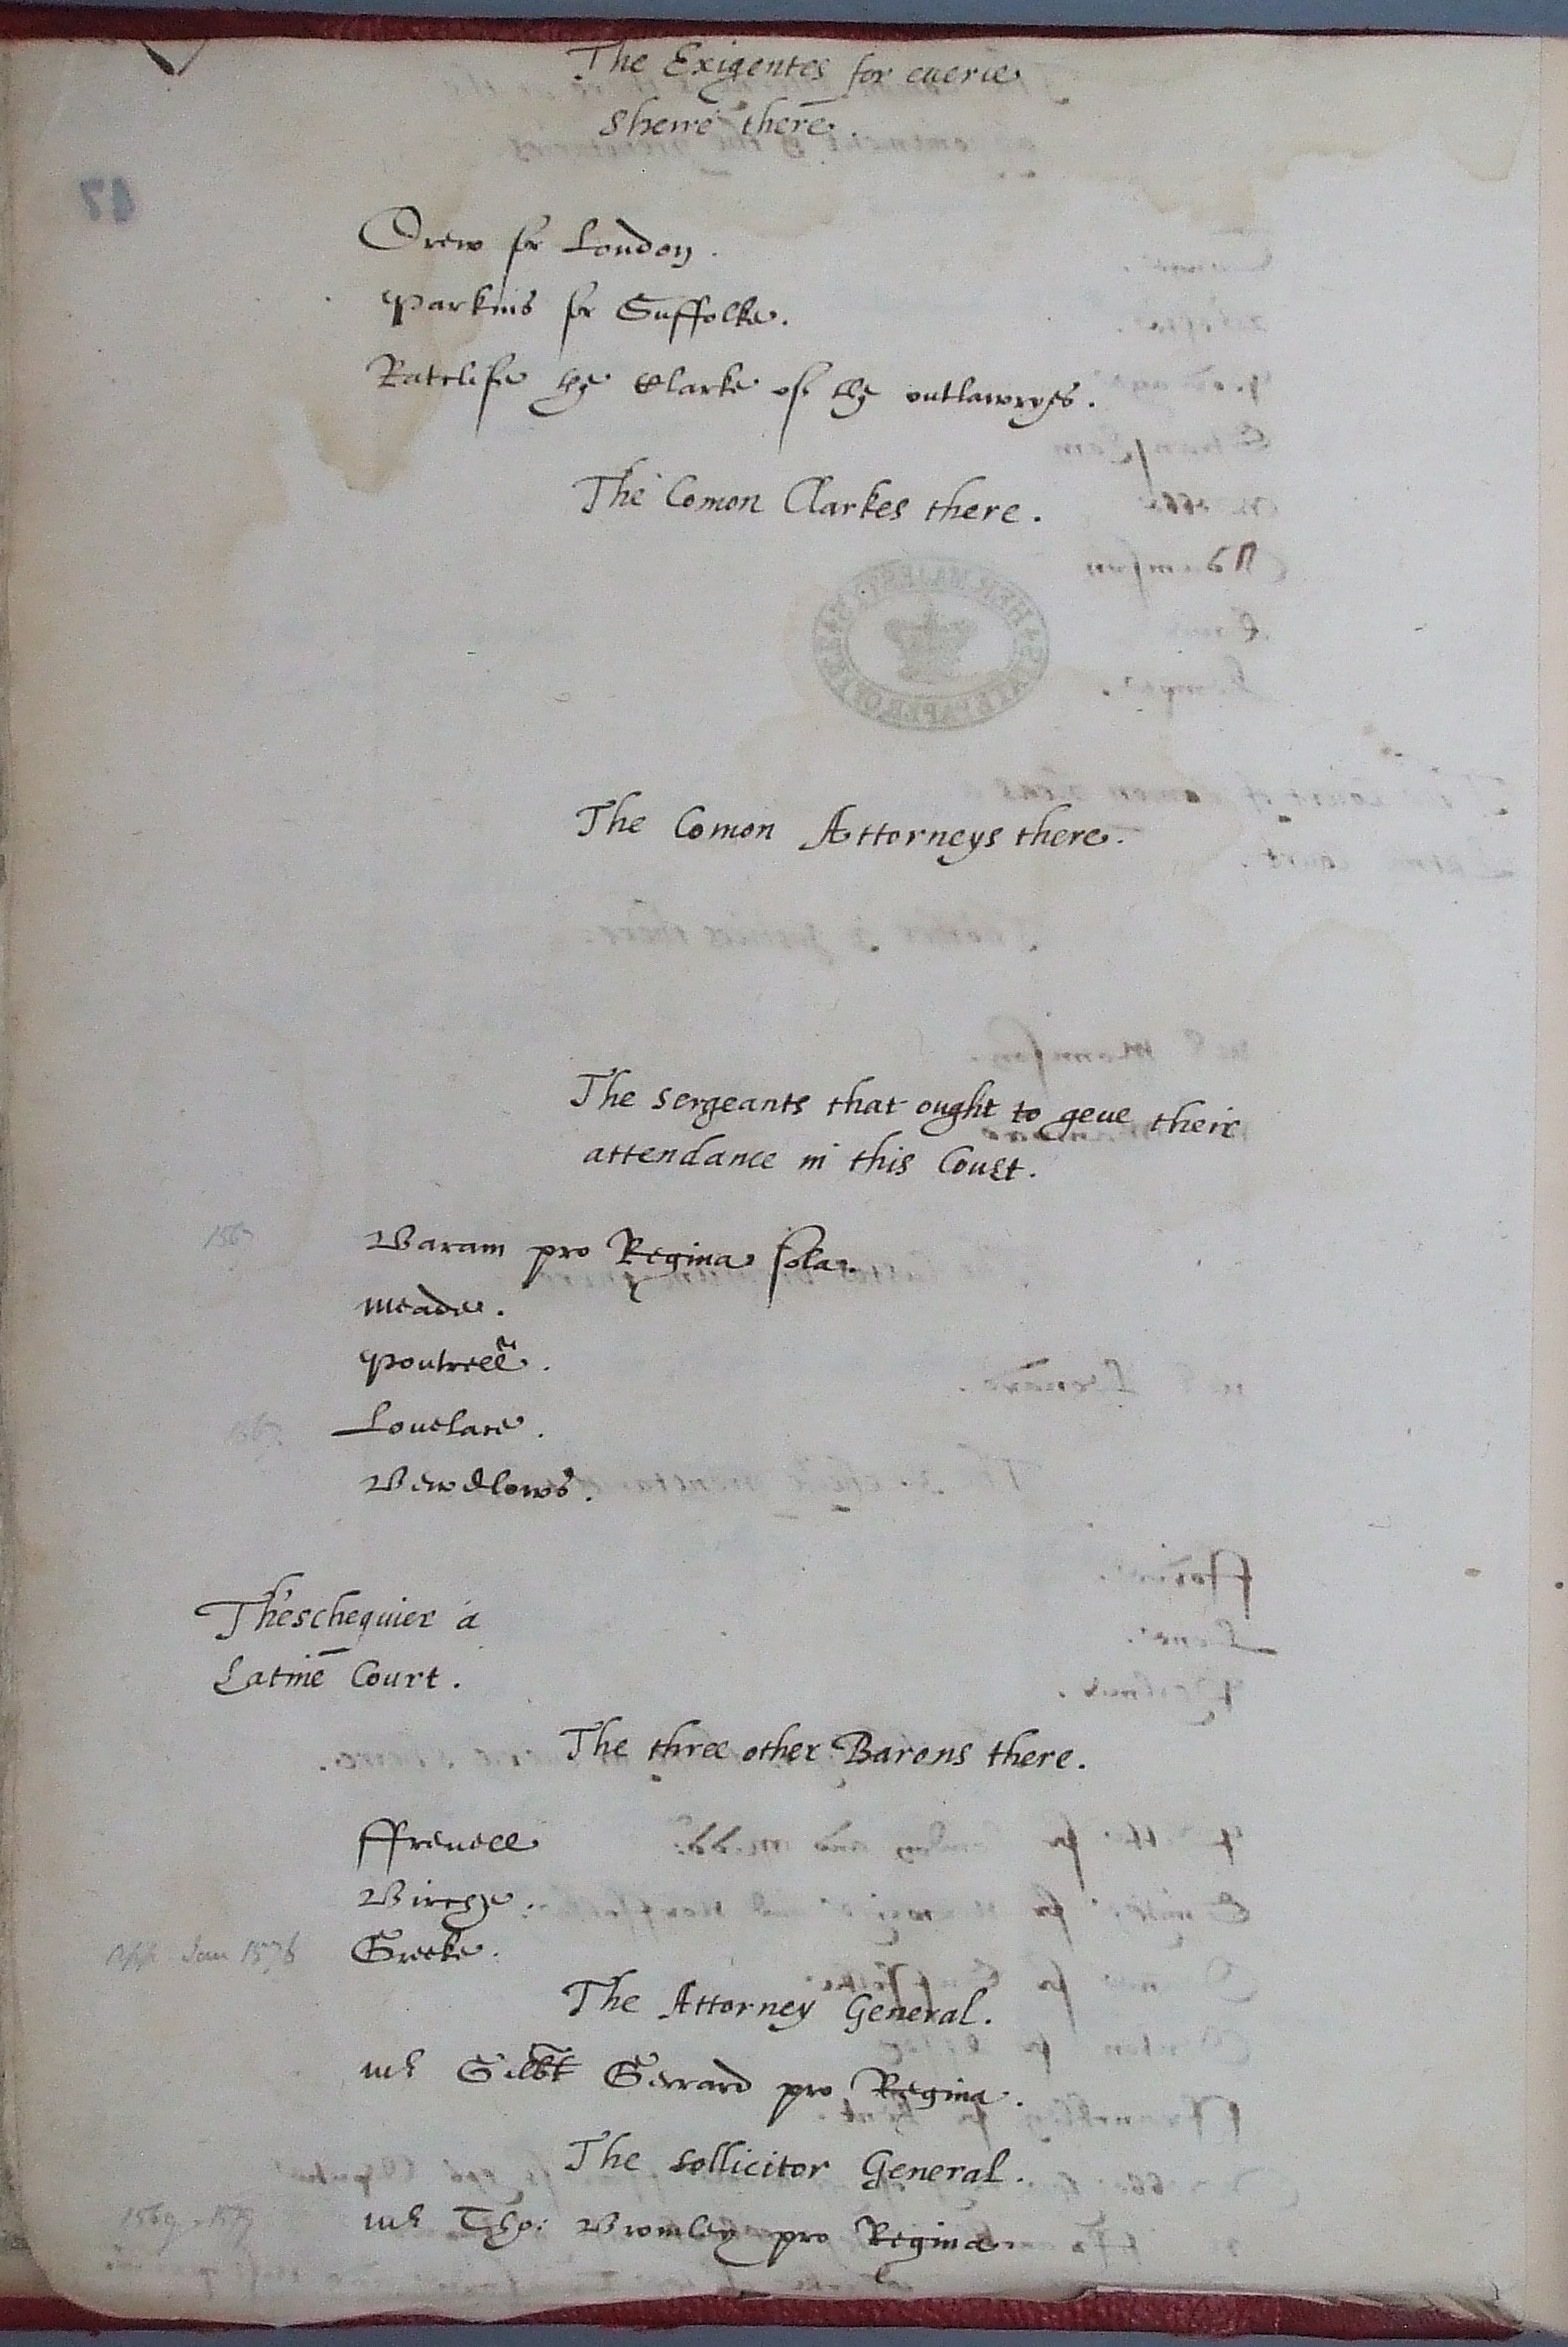 The Exigentes for euerie
Sherre there.
Drew for London.
Parkins for Suffolke.
Ratclife the Clarke of the outlawryes.
The Comon Clarkes there.
The Comon Attorneys there.
The sergeants that ought to geue their
attendance in this Court.
Baram pro Regina sola.
156
Meade.
Poutrell.
Louelace.
1567
Bendlows.
Th'eschequier a
Latine Court.
The three other Barons there.
ffreuell
Birche.
Greeke.
App. Jan 1576
The Attorney General.
Mr Gilbt Gerrard pro Regina.
The Sollicitor General.
Mr Tho: Bromley pro Regina.
1569-1579